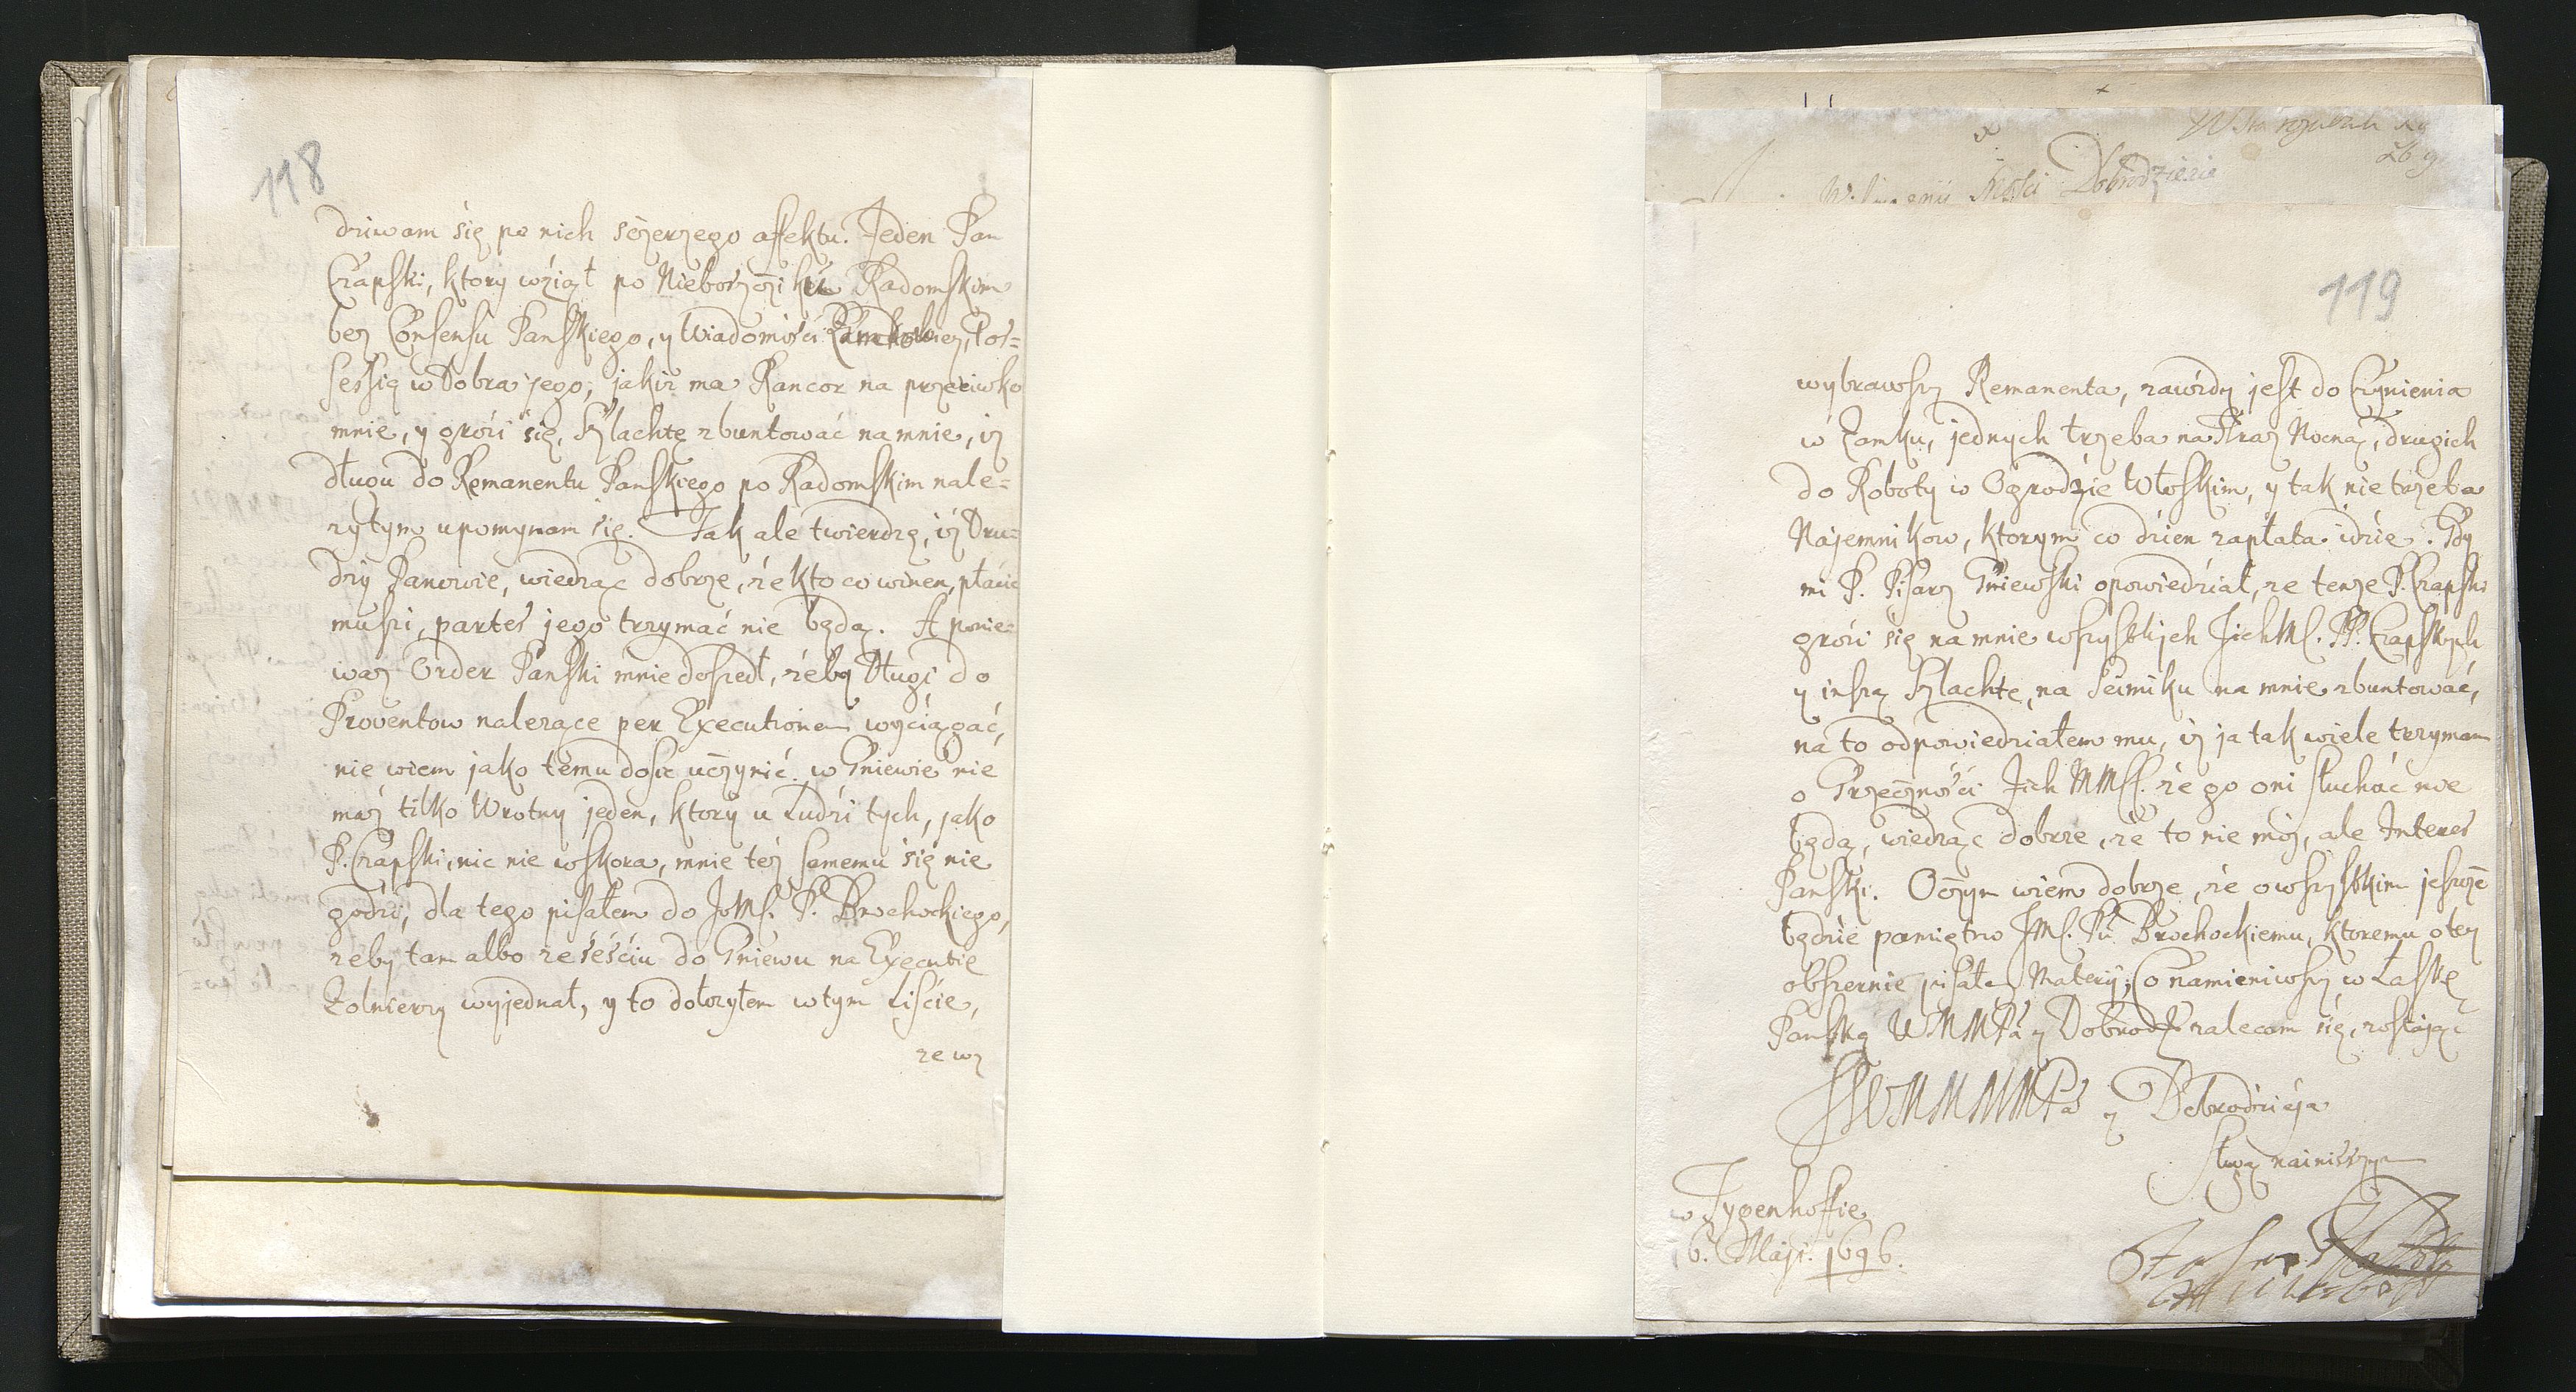 118
dziwam się po nich sczerzego affektu. Jeden Pan
Czapski, ktory wziął po Nieboszczi ku Radomskim
bez Consensu Panskiego, y Wiadomości Zamkowey, Pos=
sessią w Dobra jego, jakiz ma Rancor na przeciwko
mnie, y grozi się, Szlachtę zbuntować na mnie, iz
długu do Remanentu Panskiego po Radomskim nale=
zytym upomynam się. Tak ale twierdzę, iz Dru=
dzy Panowie, wiedząc dobrze, ze kto co winen, płacic
muszi, partes jego trzymać nie będą. A ponie=
waz Order Panski mnie doszedł, zeby Długi do
Proventow nalezące per Executionem wyciągać,
nie wiem jako temu dosic uczynić. w Gniewie nie
maz tilko Wrotny jeden, ktory u Ludzi tych, jako
P. Czapski, nic nie wskora, mnie tez samemu się nie
godzi, dla tego pisałem do JoMs. P. Brochockiego,
zeby tam albo ze sześciu do Gniewu na Executię
Zolnierzy wyjednał, y to dołozyłem w tym Liscie,
ze wy
Dobrodzieiu
119
wybrawszy Remanenta, zawzdy jest do Czynienia
w Zamku, jednych trzeba na Straz Nocną, drugich
do Roboty w Ogrodzie Włoskim, y tak nie trzeba
Najemnikow, ktorym co dzien zapłata idzie. Gdy
mi P. Pisarz Gniewski opowiedział, ze tenze P. Czapski
grozi się na mnie wszystkijch JichMs. PP. Czapskych
y inszą Szlachtę, na Seimiku na mnie zbuntować,
na to odpowiedziałem mu, iz ja tak wiele trzymam
o Grzeczności Jich MMss. ze go oni słuchać nie
będą, wiedząc dobrze, ze to nie moy, ale Interes
Panski. O czym wiem dobrze, ze o wszystkim jeszcze
będzie pamiętno JMs. Pu Brochockiemu, ktoremu o tey
obszernie pisałem Materij; Co namieniwszy w Łaskę
Panską WMMPa y Dobrodz. zalecam się, zostając
WMMMMPa y Dobrodzieja
sługą nainisszym
w Tygenhoffie
6. Maji. 1696.